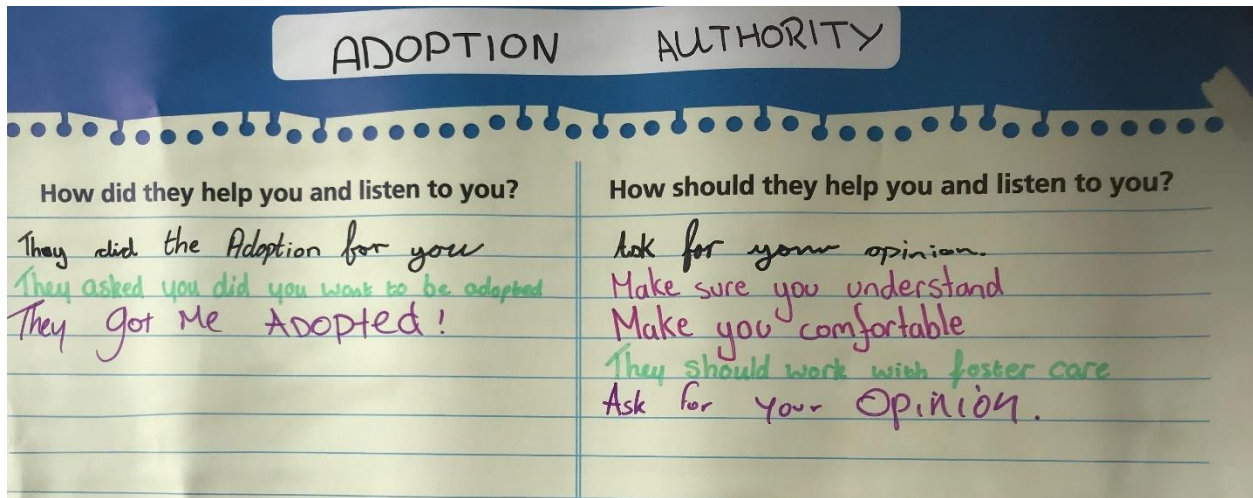 ADOPTION AUTHORITY
How did they help you and listen to you?
They did the Adoption for you
They asked you did you want to be adopted
They got Me ADopted!
How should they help you and listen to you?
Ask for your opinion.
Make sure you understand
Make you comfortable
They should work with foster care
Ask for your Opinion.